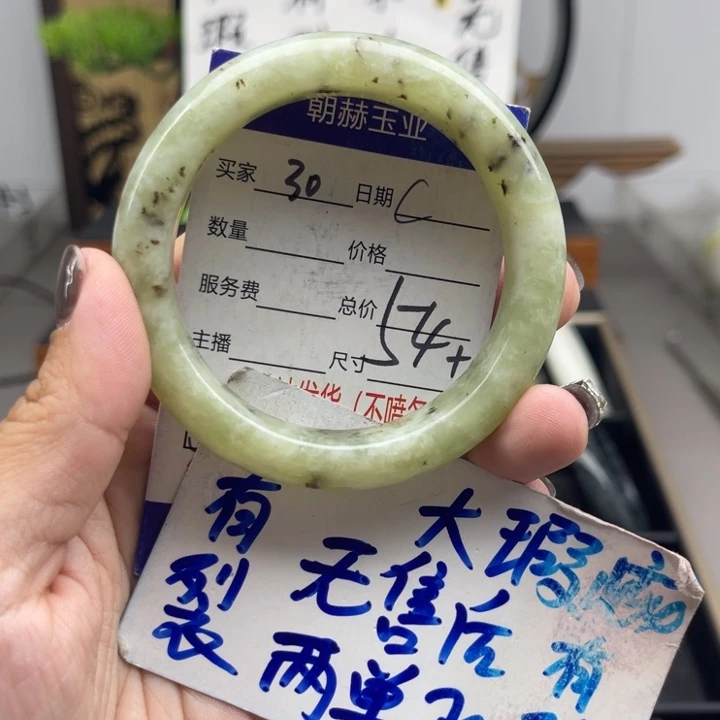 朝赫玉业
买家 30 日期 C
数量 价格
服务费 总价
主播 尺寸 54+
发货（不喷
大瑕疵 有
有裂
无售后
两单